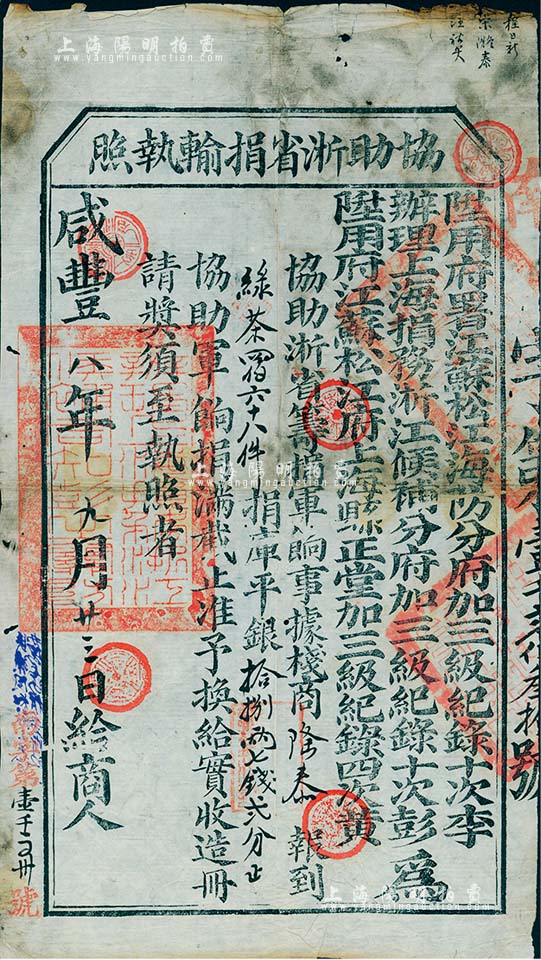 協助浙省捐輸執照
陞用府署江蘇松江海防分府加三級紀錄十次李
辦理上海捐務浙江候補分府加三級紀錄十次彭 為
陞用府江蘇松江府上海縣正堂加三級紀錄四次黃
協助浙省籌撥軍餉事據棧商隆泰報到
綠茶四百六十八件 捐庫平銀拾捌兩七錢弍分正
協助軍餉捐滿截止准予換給實收造冊
請獎須至執照者
咸豐八年九月廿三日給商人
第壹千
號
號
程日新
上海陽明拍賣
www.yangmingauction.com
上海陽明拍賣
www.yangmingauction.com
上海陽明拍賣
www.yangmingauction.com